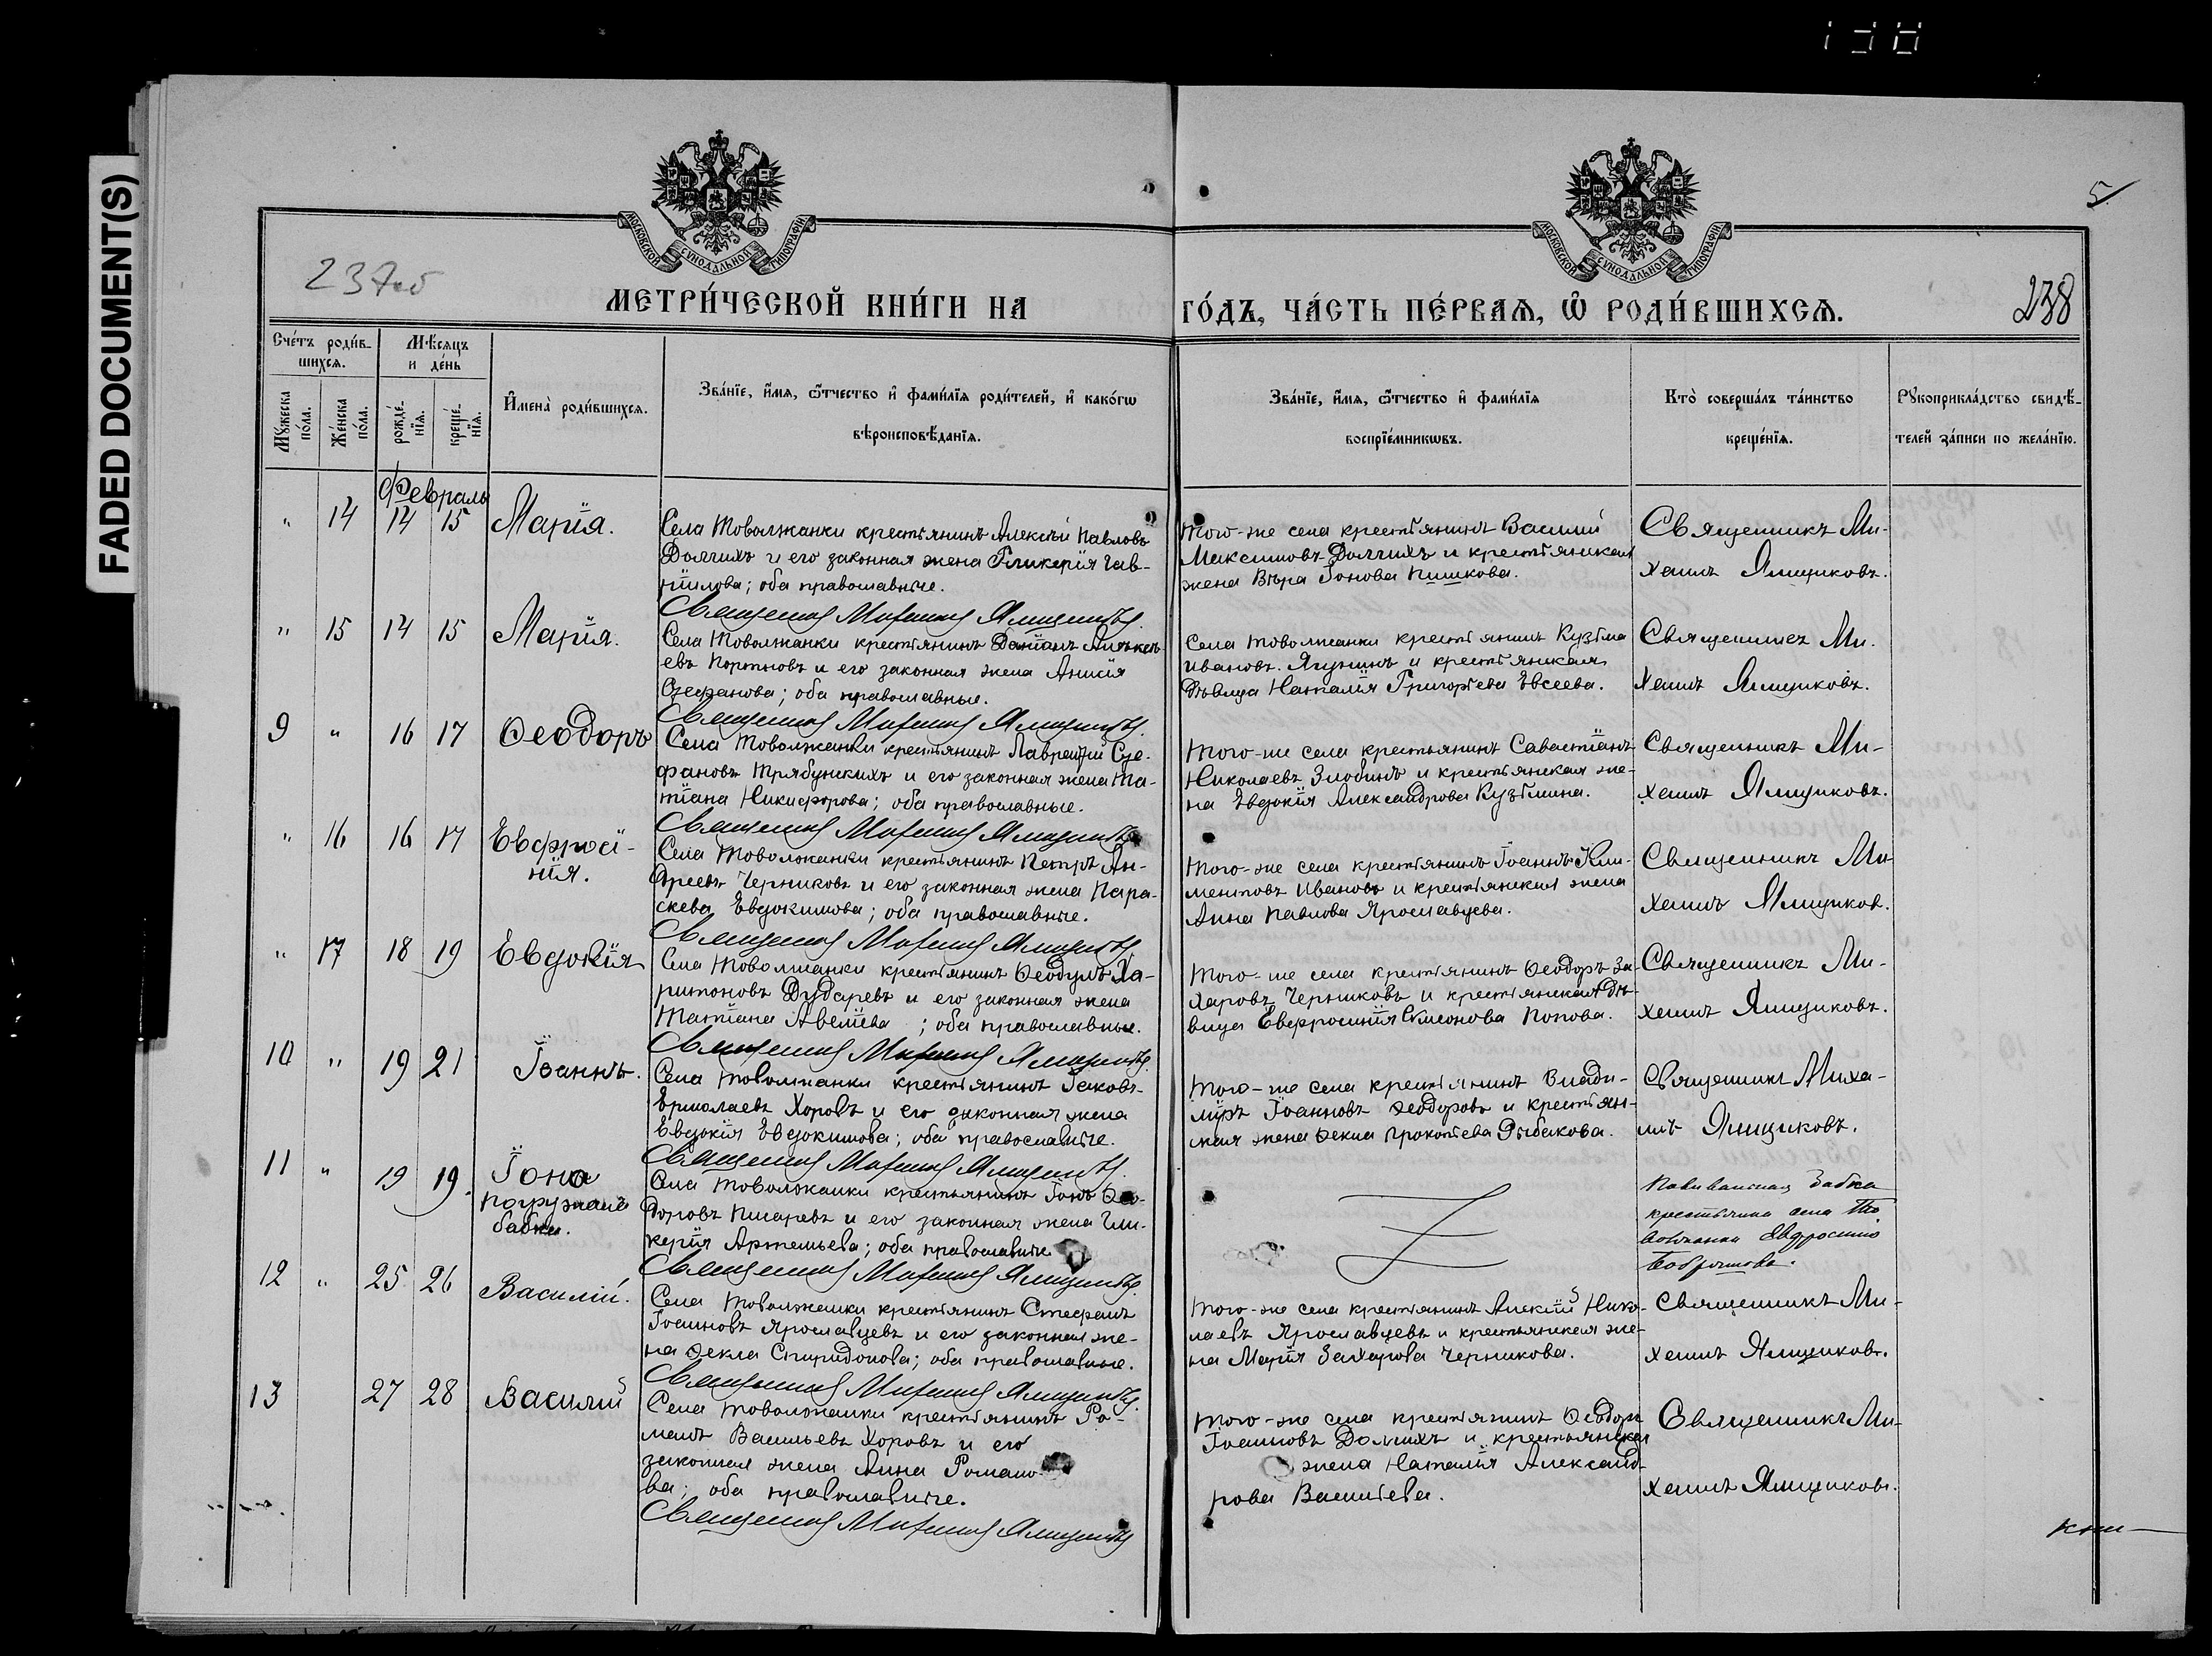 FADED DOCUMENT(S)
5
237об
238
МОСКОВСКОЙ СѴНОДАЛЬНОЙ ТИПОГРАФІИ
МОСКОВСКОЙ СѴНОДАЛЬНОЙ ТИПОГРАФІИ
МЕТРИ́ЧЕСКОЙ КНИ́ГИ НА ГО́ДЪ, ЧА́СТЬ ПЕ́РВАѦ, Ѿ РОДИ́ВШИХСѦ.
Сче́тъ роди́в-
шихсѧ.
Мѣ́сѧцъ
и де́нь
Мꙋ́жеска по́ла.
Же́нска по́ла.
рожде́-
нїѧ.
креще́-
нїѧ.
Имена̀ роди́вшихсѧ.
Зва́нїе, и́мѧ, ѻ҆́тчество и҆ фами́лїѧ роди́телей, и҆ како́гѡ
вѣроисповѣ́данїѧ.
Зва́нїе, и́мѧ, ѻ҆́тчество и҆ фами́лїѧ
воспрїе́мникѡвъ.
Кто̀ соверша́лъ та́инство
креще́нїѧ.
Рꙋкоприкла́дство свидѣ́-
телей за́писи по жела́нїю.
Февраль
" 14 14 15 Марія.
Села Товолжанки крестьянинъ Алексѣй Павловъ
Долгихъ и его законная жена Гликерія Гав-
ріилова; оба православные.
Священникъ Михаилъ Ямщиковъ.
Того-же села крестьянинъ Василій
Максимовъ Долгихъ и крестьянская
жена Вѣра Іонова Пишкова.
Священникъ Ми-
хаилъ Ямщиковъ.
" 15 14 15 Марія.
Села Товолжанки крестьянинъ Даніилъ
евъ Портновъ и его законная жена Анисія
Стефанова; оба православные.
Священникъ Михаилъ Ямщиковъ.
Села Товолжанки крестьянинъ Кузьма
Ивановъ Ягунинъ и крестьянская
дѣвица Наталія Григорьева Евсеева.
Священникъ Ми-
хаилъ Ямщиковъ.
9 " 16 17 Ѳеодоръ
Села Товолжанки крестьянинъ Лаврентій Сте-
фановъ Трябунскихъ и его законная жена Та-
тіана Никифорова; оба православные.
Священникъ Михаилъ Ямщиковъ.
Того-же села крестьянинъ Савастіанъ
Николаевъ Злобинъ и крестьянская же-
на Евдокія Александрова Кузьмина.
Священникъ Ми-
хаилъ Ямщиковъ.
" 16 16 17 Евфроси-
нія.
Села Товолжанки крестьянинъ Петръ Ан-
дреевъ Черниковъ и его законная жена Пара-
скева Евдокимова; оба православные.
Священникъ Михаилъ Ямщиковъ.
Того-же села крестьянинъ Іоаннъ Кли-
ментовъ Ивановъ и крестьянская жена
Анна Павлова Ярославцева.
Священникъ Ми-
хаилъ Ямщиков.
" 17 18 19 Евдокія
Села Товолжанки крестьянинъ Ѳеодулъ Ха-
ритоновъ Дударевъ и его законная жена
Татіана Авеліева; оба православные.
Священникъ Михаилъ Ямщиковъ.
Того-же села крестьянинъ Ѳеодоръ За-
харовъ Черниковъ и крестьянская дѣ-
вица Евфросинія Симонова Попова.
Священникъ Ми-
хаилъ Ямщиковъ.
10 " 19 21 Іоаннъ.
Села Товолжанки крестьянинъ Іаковъ
Ермолаевъ Хоровъ и его законная жена
Евдокія Евдокимова; оба православные.
Священникъ Михаилъ Ямщиковъ.
Того-же села крестьянинъ Влади-
міръ Іоанновъ Ѳеодоровъ и крестьян-
ская жена Ѳекла Прокопьева Рыбакова.
Священникъ Миха-
илъ Ямщиковъ.
11 " 19 19. Іона
погружалa
бабка.
Села Товолжанки крестьянинъ Іонъ Ѳео-
доровъ Писаревъ и его законная жена Гли-
керія Артемьева; оба православные
Священникъ Михаилъ Ямщиковъ.
Повивальная бабка
крестьянка села То-
волжанки Евфросинія
12 " 25 26 Василій.
Села Товолжанки крестьянинъ Стефанъ
Іоанновъ Ярославцевъ и его законная же-
на Ѳекла Спиридонова; оба православные.
Священникъ Михаилъ Ямщиковъ.
Того-же села крестьянинъ Алексій Нико-
лаевъ Ярославцевъ и крестьянская же-
на Марія Захарова Черникова.
Священникъ Ми-
хаилъ Ямщиковъ.
13 27 28 Василій
Села Товолжанки крестьянинъ Ро-
манъ Васильевъ Хоровъ и его
законная жена Анна Романо-
ва; оба православные.
Священникъ Михаилъ Ямщиковъ
Того-же села крестьянинъ Ѳеодоръ
Іоанновъ Долгихъ и крестьянская
жена Наталія Александ-
рова Васильева.
Священникъ Ми-
хаилъ Ямщиковъ.
кни-